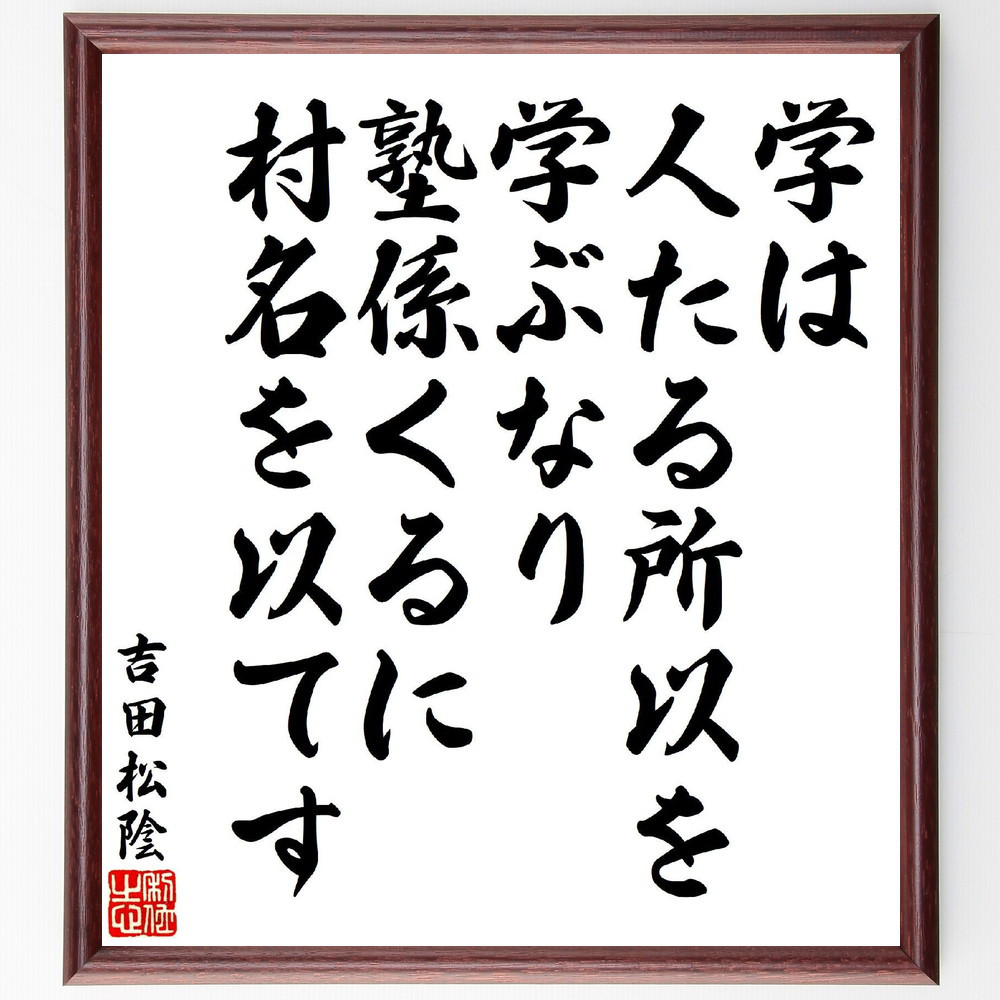 学は
人たる所以を
学ぶなり
塾係くるに
村名を以てす
吉田松陰